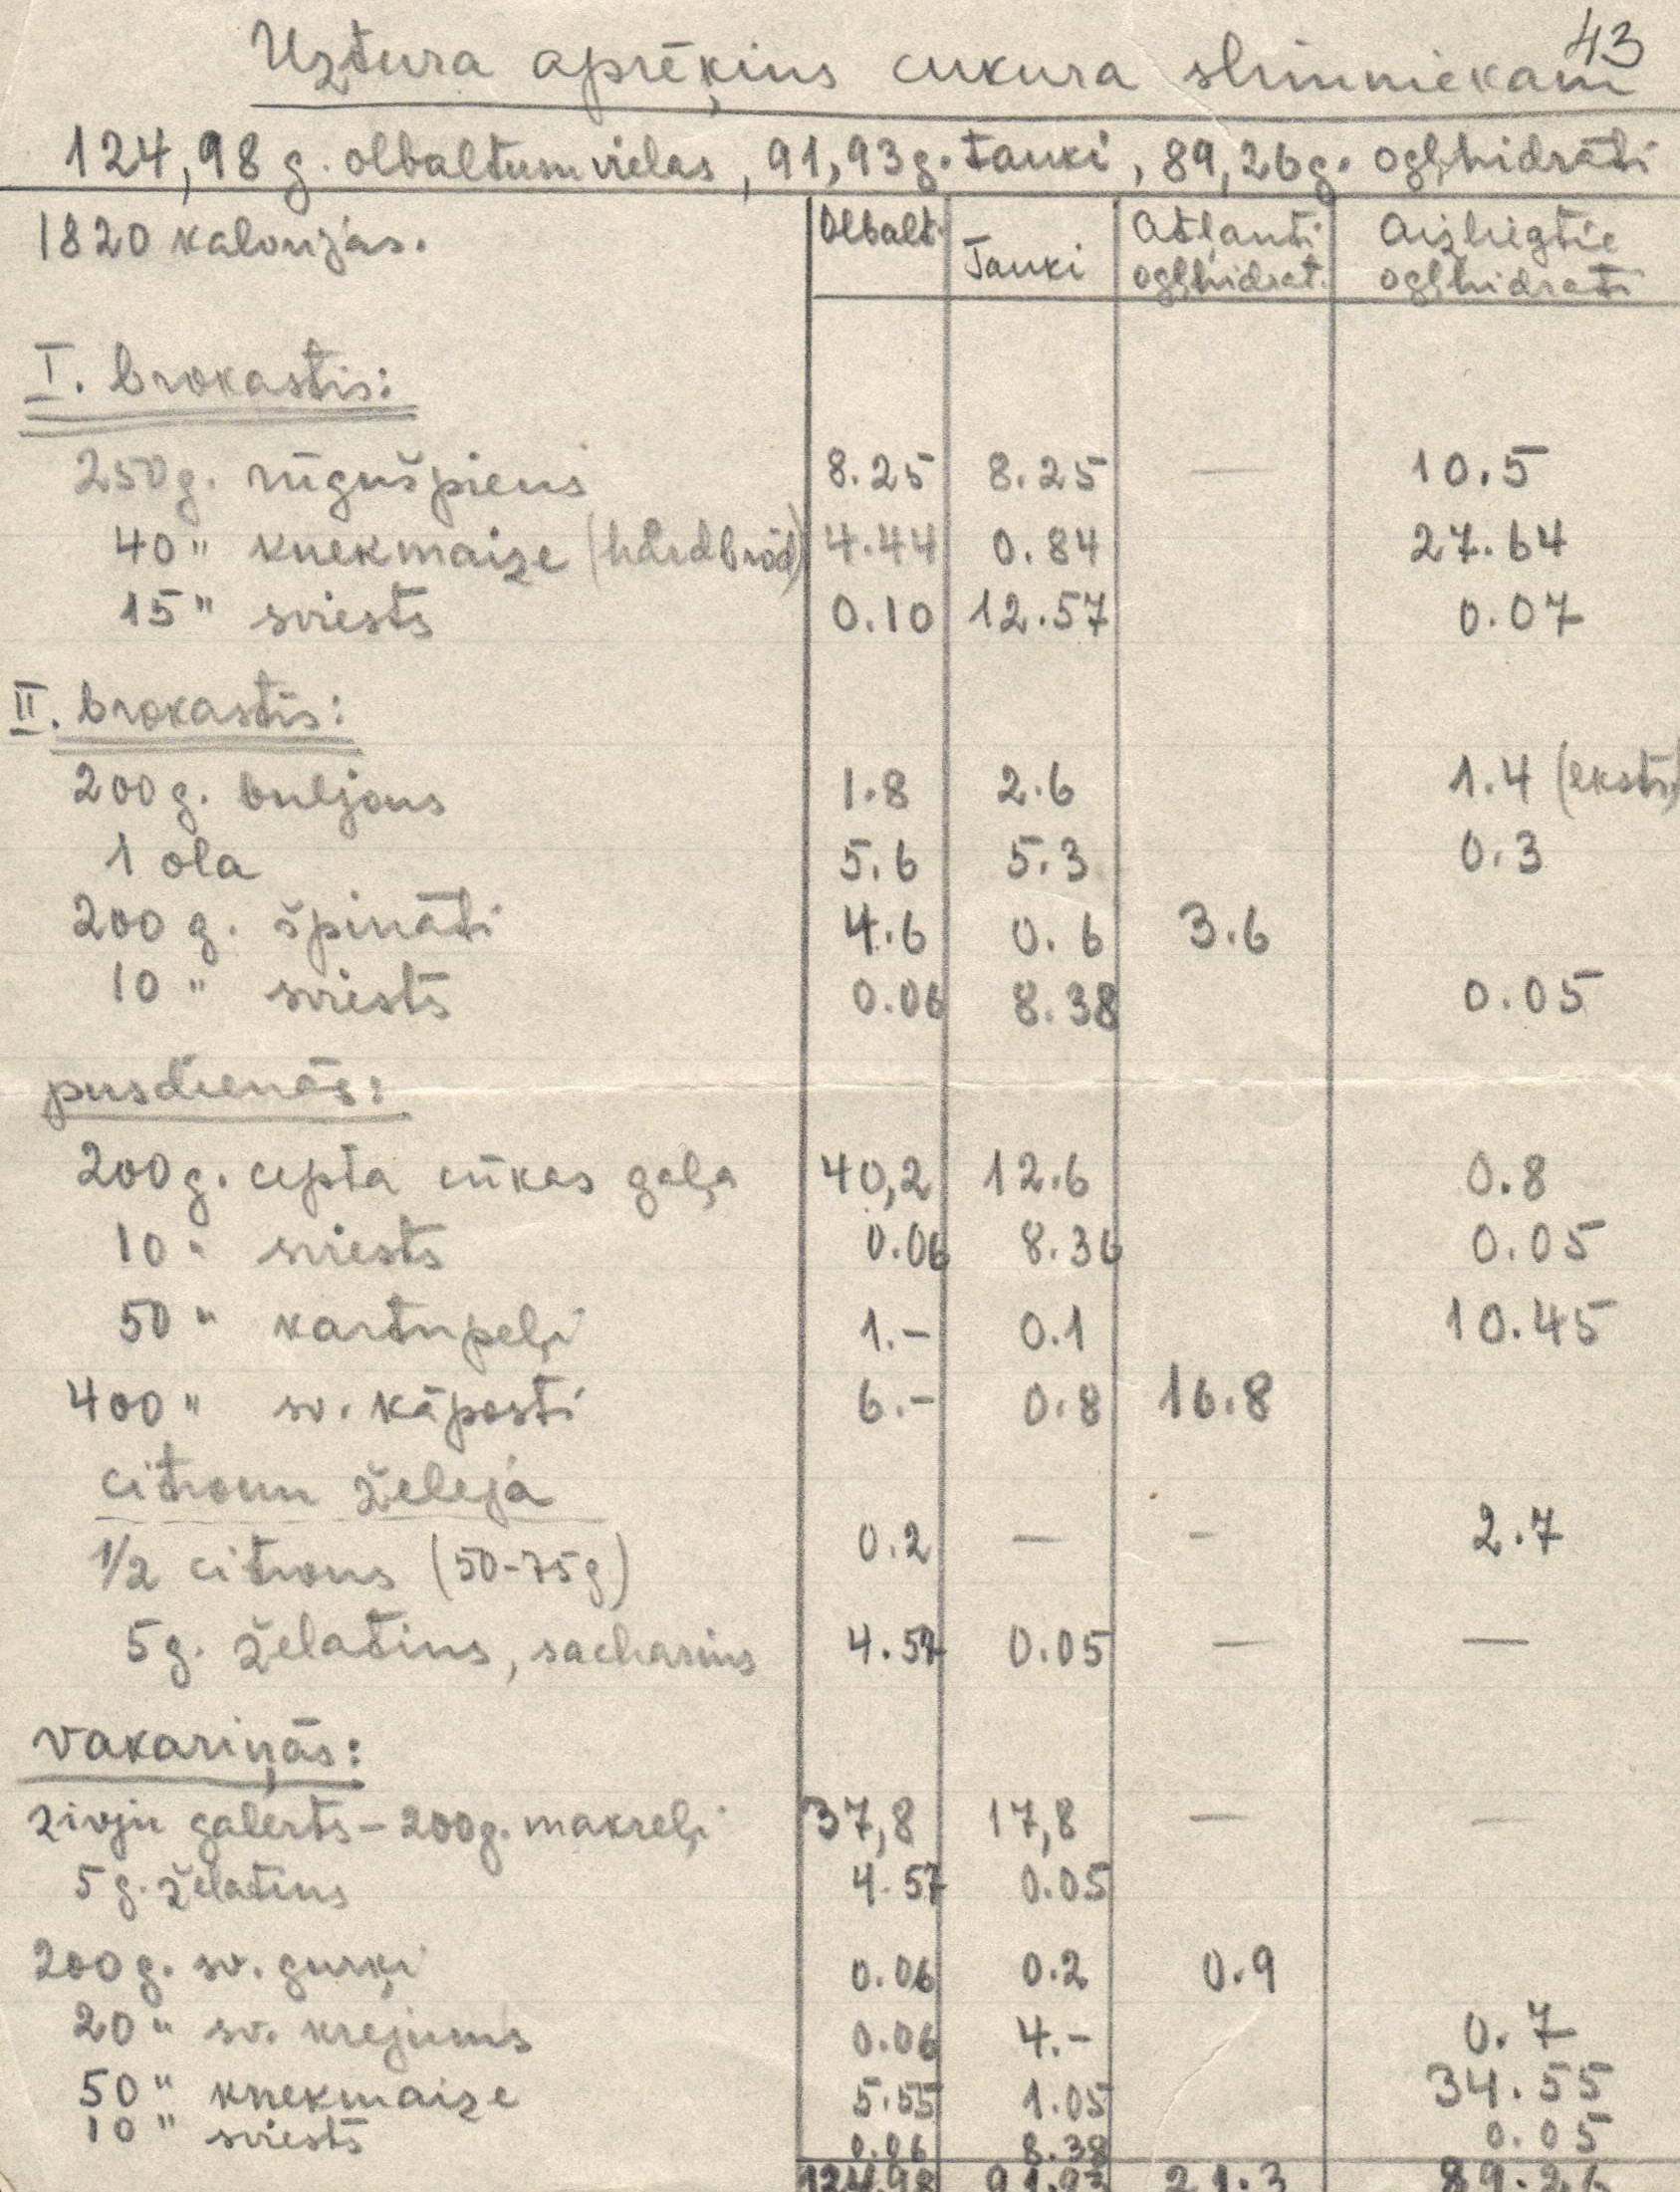 43
Uztura aprēķins cukura slimniekam
124,98 g. olbaltumvielas, 91,93g. tauki, 89,26g. ogļhidrāti
1820 kalorijas. Olbalt. Tauki Atļauti ogļhidrat. Aizliegtie ogļhidrati
I. brokastis:
250g. rūgušpiens 8.25 8.25 — 10.5
40 " knekmaize (hårdbröd) 4.44 0.84 27.64
15 " sviests 0.10 12.57 0.07
II. brokastīs:
200 g. buljons 1.8 2.6 1.4 (ekstr)
1 ola 5.6 5.3 0.3
200 g. špināti 4.6 0.6 3.6
10 " sviests 0.06 8.38 0.05
pusdienās:
200g. cepta cūkas gaļa 40,2 12.6 0.8
10 " sviests 0.06 8.36 0.05
50 " kartupeļi 1.- 0.1 10.45
400 " sv. kāposti 6.- 0.8 16.8
citronu želeja
1/2 citrons (50-75g) 0.2 — - 2.7
5g. želatins, sacharins 4.57 0.05 — —
vakariņās:
zivju galerts – 200g. makreļi 37,8 17,8 — —
5 g. želatins 4.57 0.05
200g. sv. gurķi 0.06 0.2 0.9
20 " sv. krejums 0.06 4.- 0.7
50 " knekmaize 5.55 1.05 34.55
10 " sviests 0.06 8.38 0.05
124.98 91.93 21.3 89.26